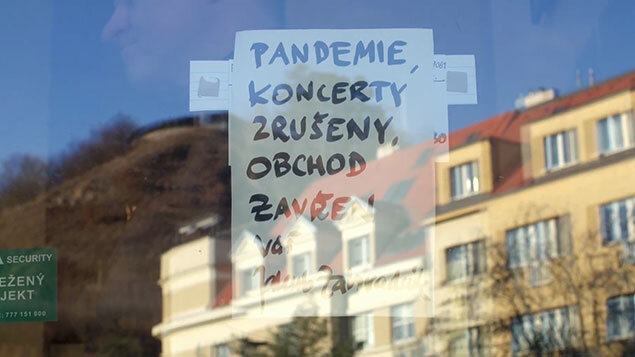 PANDEMIE,
KONCERTY
ZRUŠENY,
OBCHOD
ZAVŘEN
Váš
SECURITY
EŽENÝ
JEKT
: 777 151 000